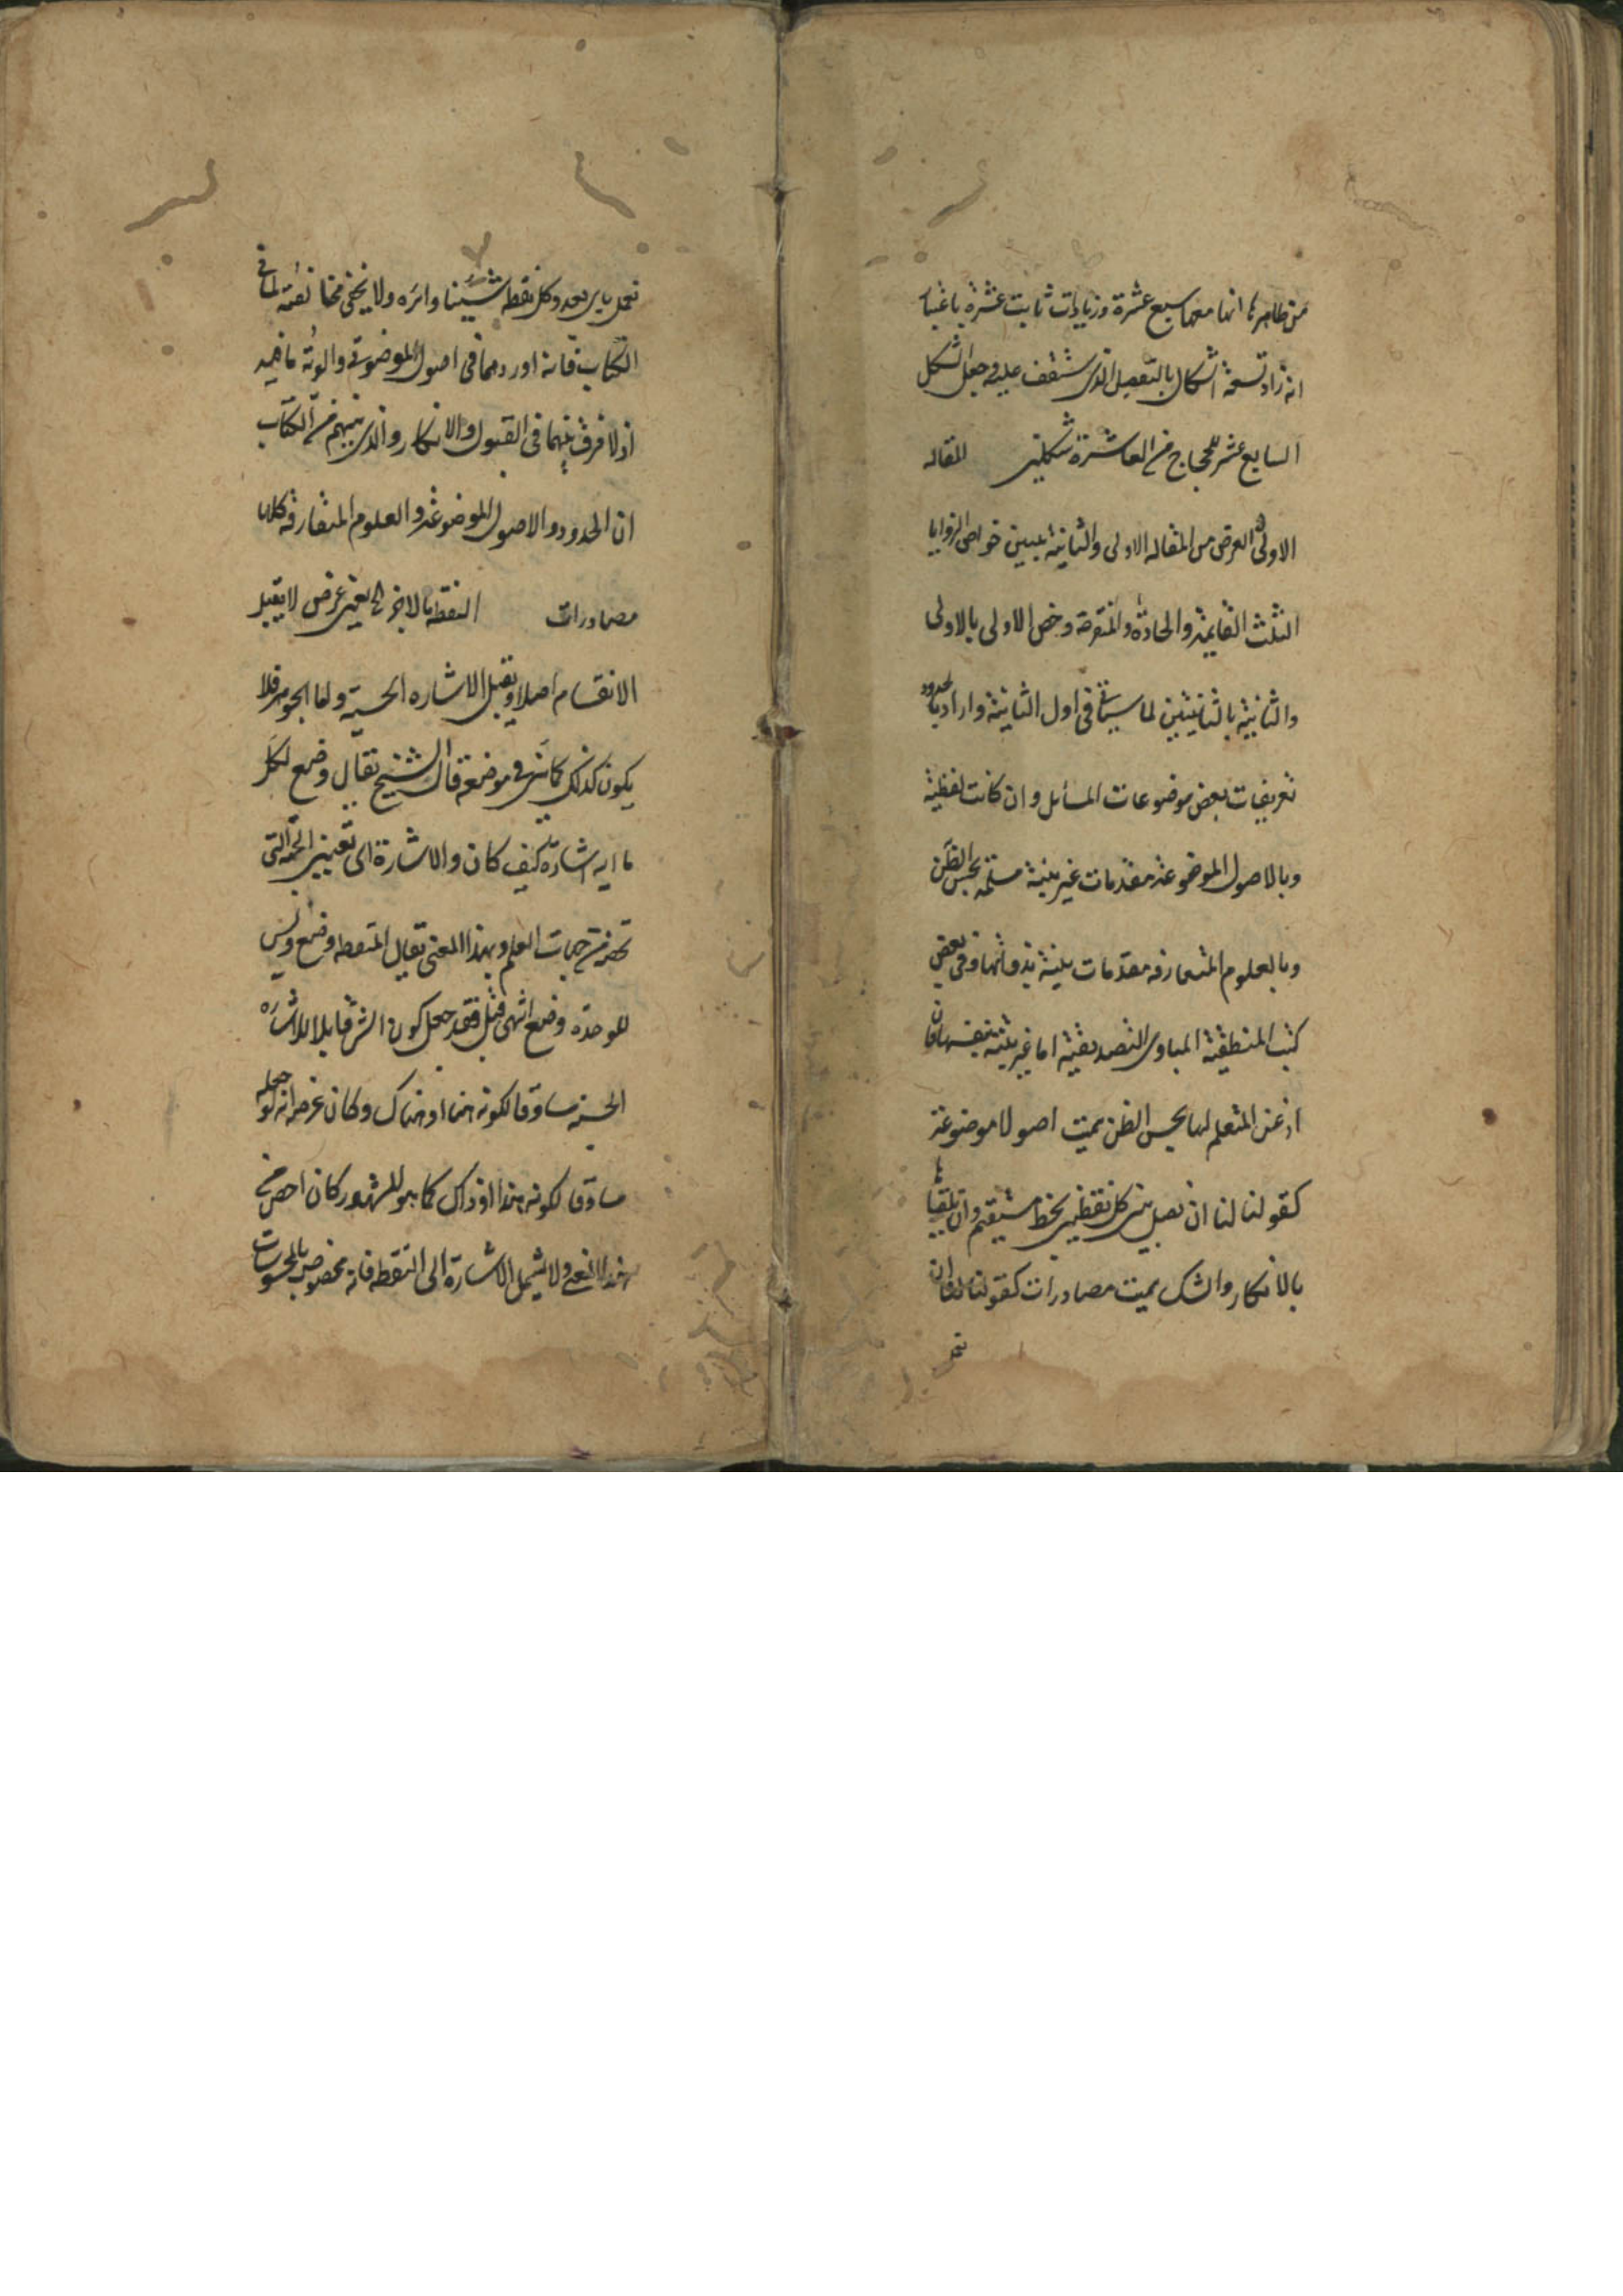 من ظاهرها انها معها سبع عشرة وزيادات ثابت عشرة باعتبار
انه زاد تسعة اشكال بالتفصيل الذى ستقف عليه وجعل الشكل
السابع عشر للحجاج من العاشرة شكلين المقاله
الاولى الغرض من المقاله الاولى والثانية تبيين خواص الزوايا
الثلث القايمة والحادة والمنفرجة وخص الاولى بالاولى
والثانية بالثانيتين لما سياتى فى اول الثانية واراد بالحدود
تعريفات بعض موضوعات المسائل وان كانت لفظية
وبالاصول الموضوعة مقدمات غير بينة مسلمة بحسن الظن
وبالعلوم المتعارفه مقدمات بينة بذواتها وفى بعض
كتب المنطقية المبادى التصديقية اما غير بينة بنفسها فان
اذعن المتعلم لها بحسن الظن سميت اصولا موضوعة
كقولنا لنا ان نصل بين كل نقطتين بخط مستقيم وان تلقيها
بالانكار والشك سميت مصادرات كقولنا لنا ان
نعمل باى بعد وكل نقطه شيئنا دائره ولا يخفى مخالفته لما فى
الكتاب فانه اوردهما فى اصول الموضوعة
اذ لا فرق بينهما فى القبول والانكار والذى يفهم من الكتاب
ان الحدود والاصول الموضوعة والعلوم المتعارفة كلها
مصادرات النقطه ما لا جزء له يعنى عرض لا يقبل
الانقسام اصلا ويقبل الاشاره الحسية واما الجوهر فلا
يكون كذلك كما بين فى موضعه قال الشيخ يقال وضع لكل
ما اليه اشارة كيف كان والاشارة الى تعيين الجهة التى
تخصه من جهات العلم وبهذا المعنى يقال للنقطه وضع وليس
للوحدة وضع انتهى قيل فقد جعل كون الشى قابلا للاشاره
الحسيه مساوقا لكونه هنا او هناك وكان غرضه انه لو جعله
مساوقا لكونه هذا او ذاك كما هو المشهور كان اخص من
هذا المعنى ولا يشمل الاشارة الى النقطه فانه مخصوص بالمحسوسات